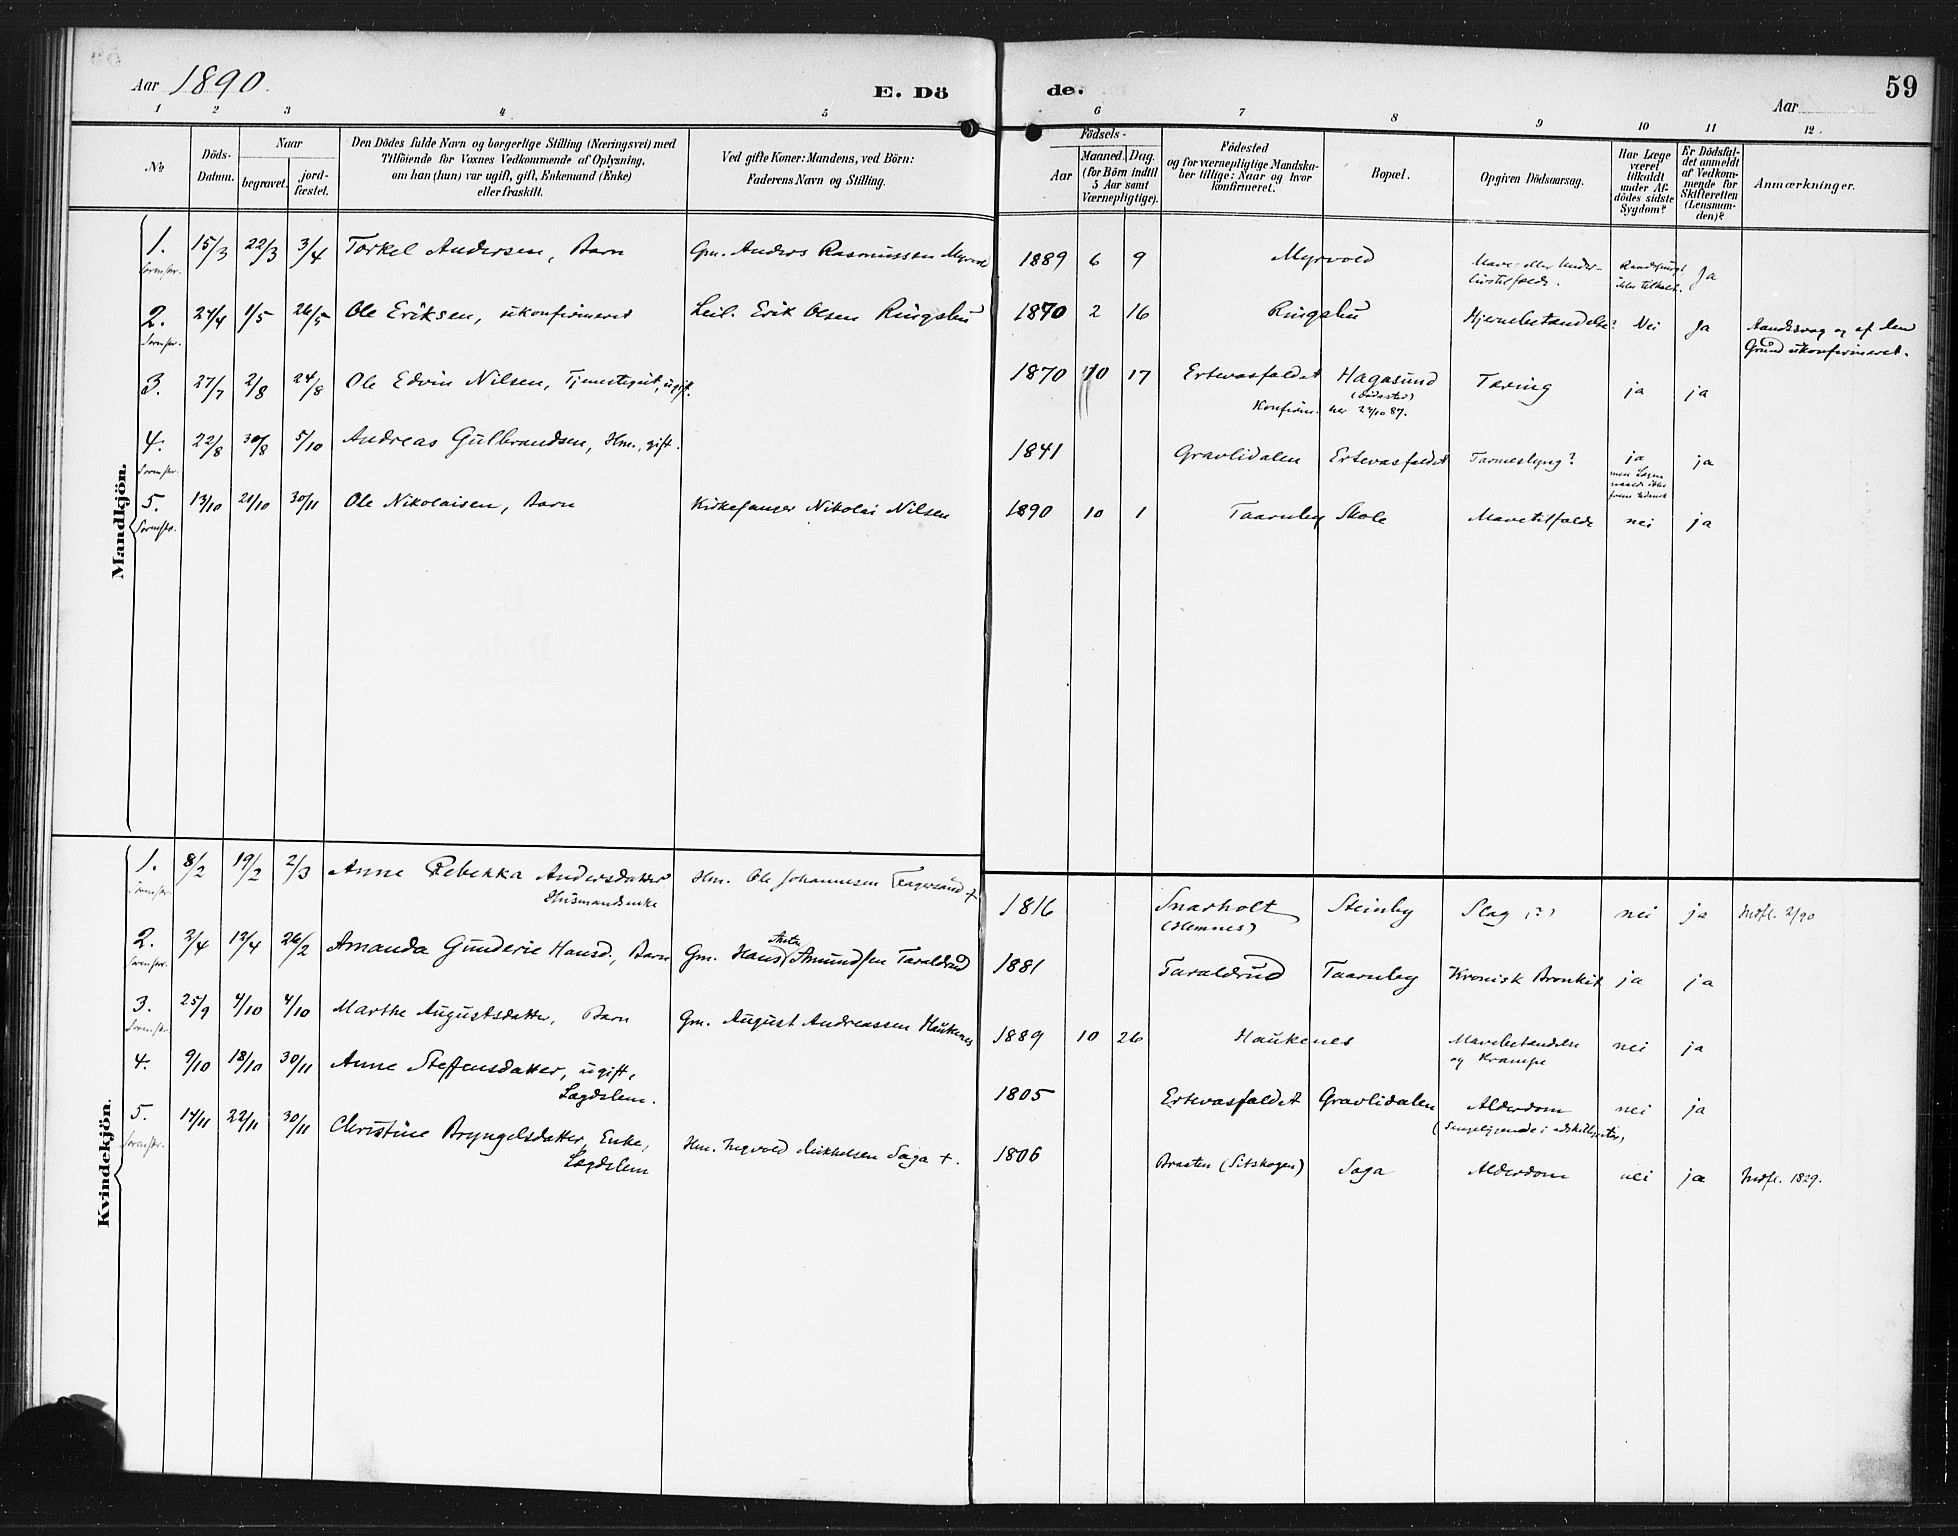 Aar 1890.
E. Dö
de.
Aar
59
1 2 3 4 5 6 7 8 9 10 11 12.
No
Döds-Datum.
Naar
begravet.
jord-fæstet.
Den Dödes fulde Navn og borgerlige Stilling (Næringsvei) med
Tilföiende for Voxnes Vedkommende af Oplysning,
om han (hun) var ugift, gift, Enkemand (Enke)
eller fraskilt.
Ved gifte Koner: Mandens, ved Börn:
Faderens Navn og Stilling.
Födsels-
Aar
Maaned. Dag.
(for Börn indtil
5 Aar samt
Værnepligtige).
Födested
og for værnepligtige Mandska-
ber tillige: Naar og hvor
konfirmeret.
Bopæl.
Opgiven Dödsaarsag.
Har Læge
været
tilkaldt
under Af-
dödes sidste
Sygdom?
Er Dödsfal-
det anmeldt
af Vedkom-
mende for
Skifteretten
(Lensman-
den)?
Anmærkninger.
Mandkjön.
1. 15/3 22/3 3/4 Torkel Andersen, Barn Gm. Anders Rasmussen Myrvold 1889 6 9 Myrvold Ja
2. 24/4 1/5 26/5 Ole Eriksen, ukonfirmeret Leil. Erik Olsen Ringsbu 1870 2 16 Ringsbu Hjernebetændelse? Nei Ja Aandssvag og af den
Grund ukonfirmeret.
3. 27/7 2/8 24/8 Ole Edvin Nilsen, Tjenestegut, ugift. 1870 10 17 Ertevasfaldet Hagasund Tæring ja ja
(Dödssted)
Konfirm. her 24/10 87.
4. 22/8 30/8 5/10 Andreas Gulbrandsen, Hm., gift. 1841 Gravlidalen Ertevasfaldet Tarmeslyng? ja ja
5. 13/10 21/10 30/11 Ole Nikolaisen, Barn Kirkesanger Nikolai Nilsen 1890 10 1 Taarnby Skole Mavetilfælde nei ja
Kvindekjön.
1. 8/2 19/2 2/3 Anne Rebekka Andersdatter Hm. Ole Johannesen Fagersand + 1816 Snarholt Steinby Slag (?) nei ja Indfl. 2/90
Husmandsenke (Hemnes)
2. 2/4 12/4 26/2 Amanda Gunderie Hansd., Barn Gm. Hans Amundsen Taraldrud 1881 Taraldrud Taarnby Kronisk Bronkit ja ja
3. 25/9 4/10 4/10 Marthe Augustsdatter, Barn Gm. August Andreassen Haukenes 1889 10 26 Haukenes Mavebetændelse nei ja
og Krampe
4. 9/10 18/10 30/11 Anne Steffensdatter, ugift, 1805 Ertevasfaldet Gravlidalen Alderdom nei ja
Lægdslem.
5. 14/11 22/11 30/11 Christine Bryngelsdatter, Enke, Hm. Ingvold Mikkelsen Saga +. 1806 Braaten (Sitskogen) Saga Alderdom nei ja Indfl. 1829.
Lægdslem